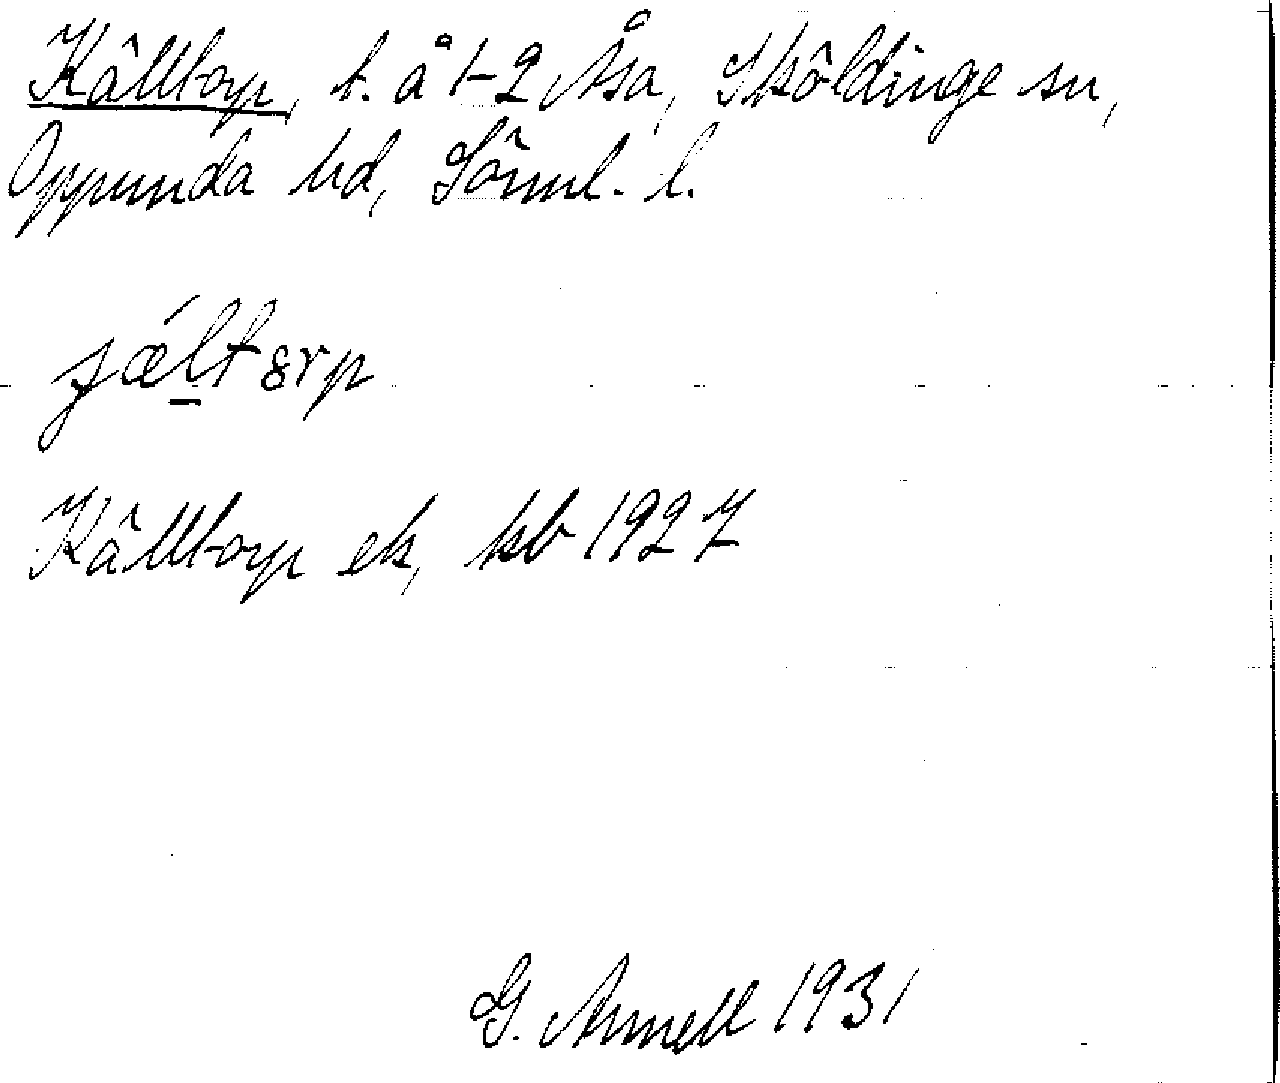 Källtorp, t. å 1-2 Åsa, Sköldinge sn,
Oppunda hd, Sörml. l.
Källtorp ek, kb 1927
G. Armell 1931